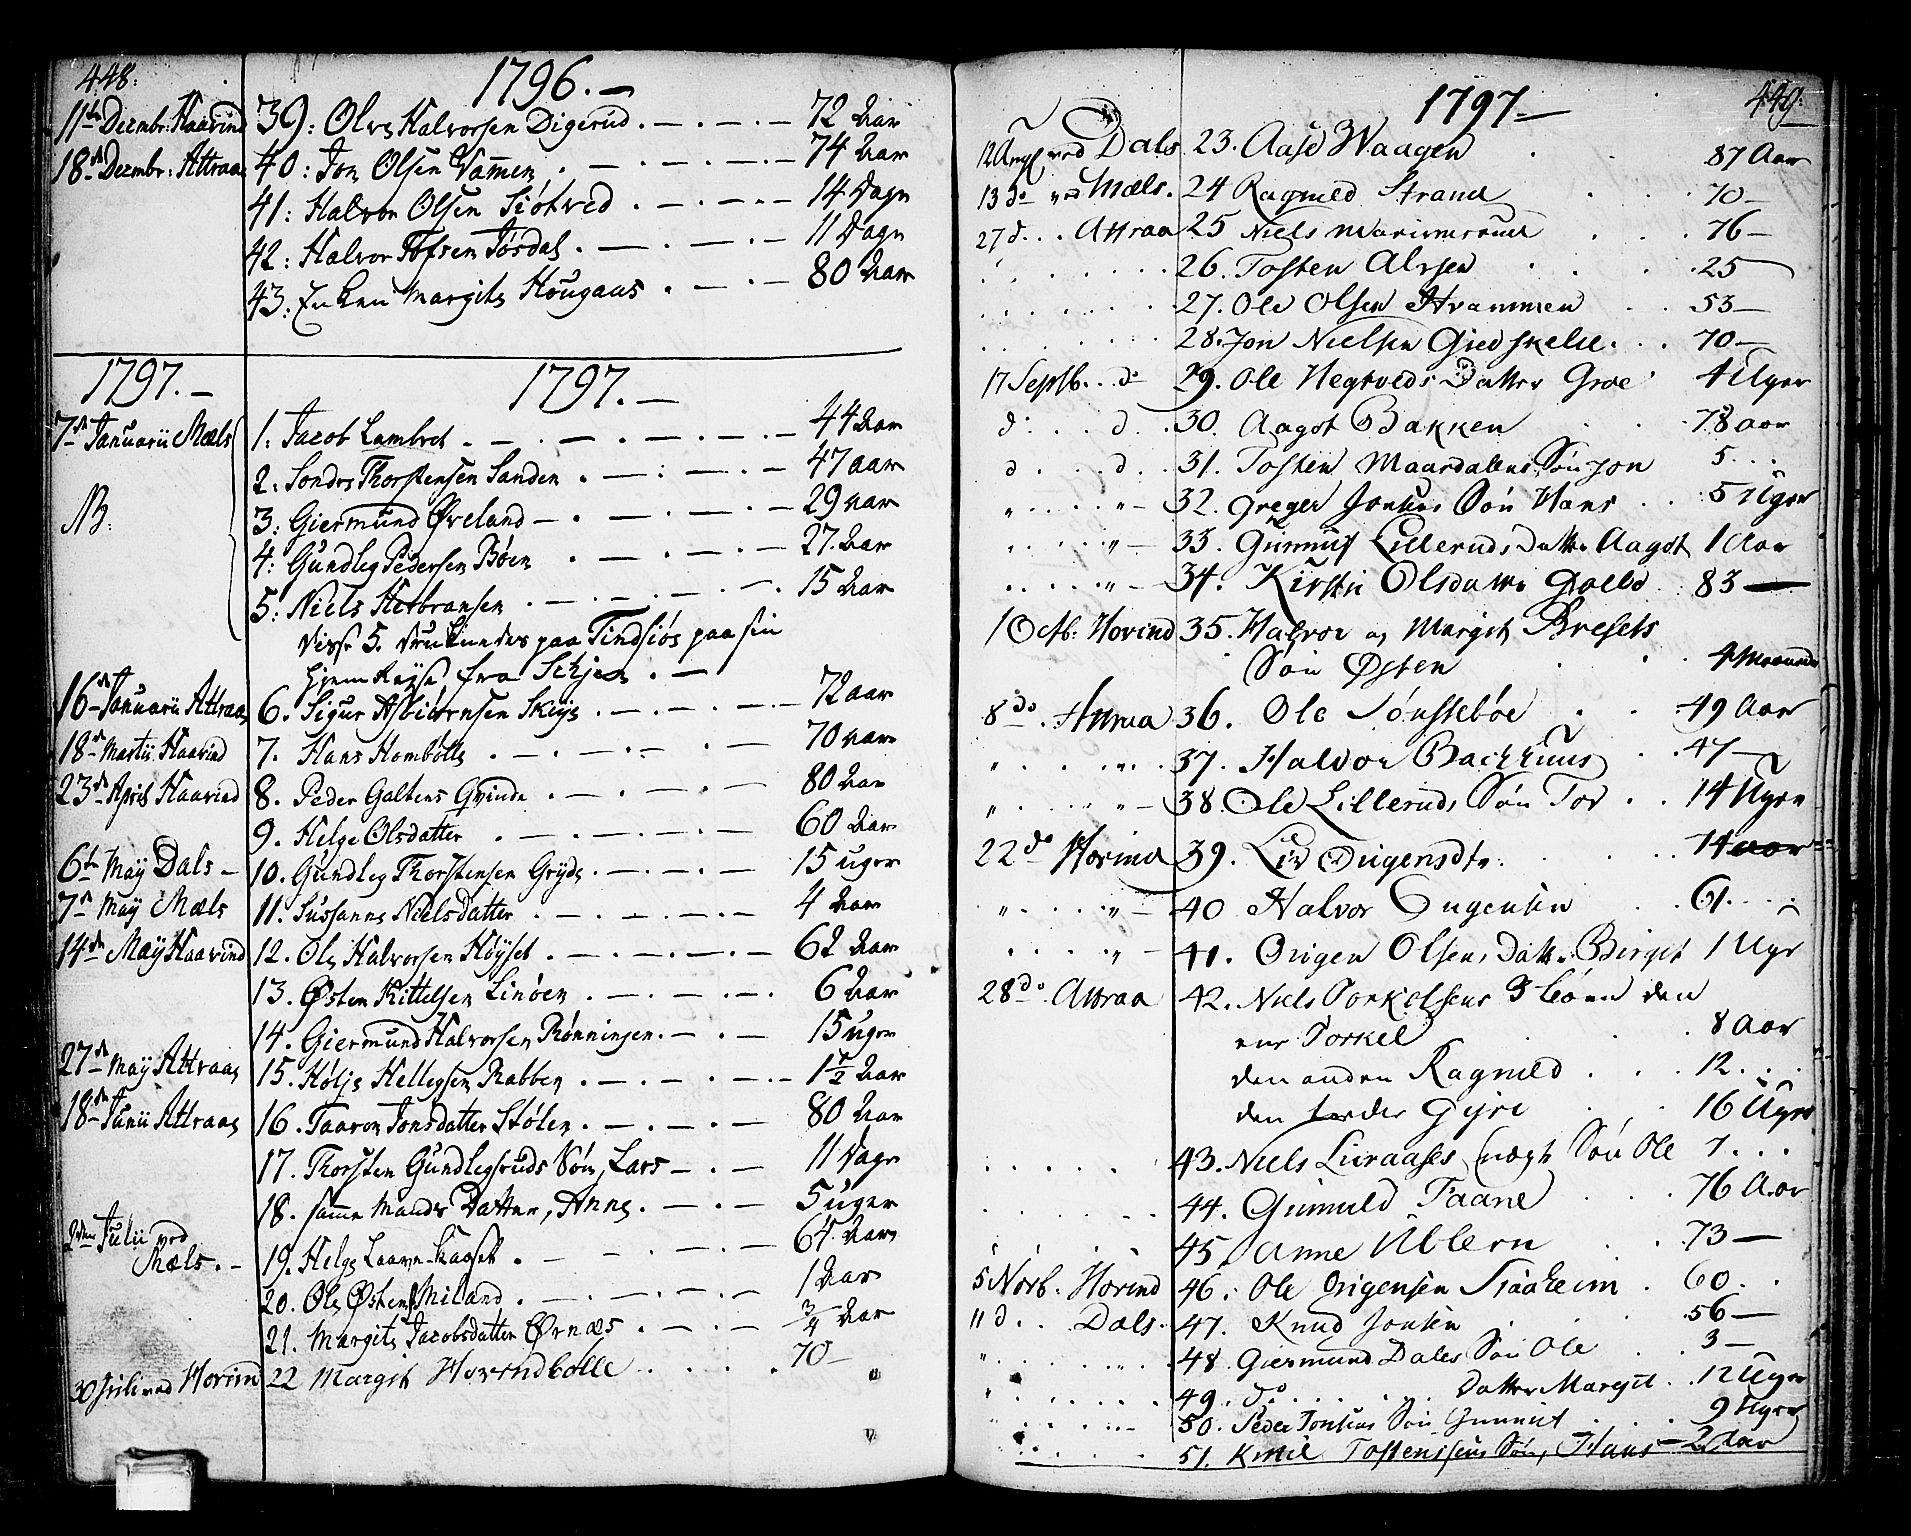 448.
1796.
11te Decembr: Haavind 39: Olve Halvorsen Digerud 72 Aar
18de Decembr: Attraae 40: Jon Olsen Vammen 74 Aar
41: Halvor Olsen Siøtved 14 Dage
42: Halvor Tofsen Jøsdal 11 Dage
43: Enken Margite Hougaas 80 Aar
1797. 1797.
7de Januarii Mæls 1. Jacob Lambret 44 Aar
2. Sondre Thorstensen Sanden 47 aar
NB: 3: Giermund Øreland 29 aar
4: Gundleg Pedersen Bøen 27. Aar
5: Niels Herbransen 15 Aar
Disse 5. druknedes paa Tindsiøe paa sin
hjem Rejse fra Schjen
16de Januarii Attraae 6. Sigur Asbiørnsen Skeije 72 aar
18de Martii Haavind 7. Hans Hombølle 70 aar
23de April Haavind 8. Peder Galtens Qvinde 80 Aar
9. Helge Olsdatter 60 Aar
6te May Dals 10. Gundleg Thorstensen Gryde 15 uger
7de May Mæls 11. Sussanne Nielsdatter 4 Aar
14de May Haavind 12. Ole Halvorsen Høyset 62 Aar
13. Østen Kittelsen Linøen 6 Aar
14. Giermund Halvorsen Rønningen 15 uger
27de May Attraae 15. Hølje Hellegsen Rabben 1 1/2 Aar
18de Junii Attraae 16. Taaron Jonsdatter Stølen 80 Aar
17. Thorsten Gundlegsruds Søn, Lars 11 Dage
18. samme Mands Datter, Anne 5 uger
2den Julii ved
Mæls 19. Helge Laavekaaset 64 Aar
20. Ole Østens Miland 1 Aar
21. Margite Jacobsdatter Ørnæs 3/4 Aar
30 Juli ved Hovin 22 Margit Hovindbølle 70
449.
1797
12 Aug ved Dals 23. Aase Waagen 87 Aar
13 do ved Mæls. 24 Ragnild Strand 70
27 d. Attraa 25 Niels 76
26. Tosten Alvsen 25
27. Ole Olsen Strammen 53
28. Jon Nielsen Giedskelie 70
17 Septb. do 29. Ole Hegtveds Datter Groe 4 Uger
d. d. 30. Aagot Bakken 78 aar
d. d. 31. Tosten Maardalens Søn Jon 5
" " 32. Greger Jonsens Søn Hans 5 Uger
" 33. Gunnuf Lilleruds Datter Aagot 1 Aar
" 34. Kirsti Olsdatter 83
1 Octb: Hovind 35. Halvor og Margit Bresets
Søn Østen 4 Maaneder
8 do. 36. Ole Sønstebøe 49 Aar
" " 37. Halvor Backhuus 47
" " 38. Ole Lilleruds Søn Tov 14 Uger
22 do Hovind 39. Liv Ougensdtr. 14 aar
" " 40 Halvor Ougensen 61
" 41. Origen Olsens Datter Birgit 1 Uge
28 do. Attraa 42. Niels Torkelsens 3 Børn den
ene Torkel 8 Aar
den anden Ragnild 12
den tredie Gyri 16 Uger
43. Niels Luraases Søn Ole 7
44. Gunnild Taane 76 Aar
45 Anne 73
5 Novb. Hovind 46. Ole Origensen Staaheim 60
11 d. Dals. 47. Knud Jonsen 56
" " 48. Giermund Dales Søn Ole 3
" 49. do Datter Margit 12 Uger
50. Peder Jonsens Søn Gunnut 9 Uger
51. Kittil Tostenssens Søn, Hans 2 Aar